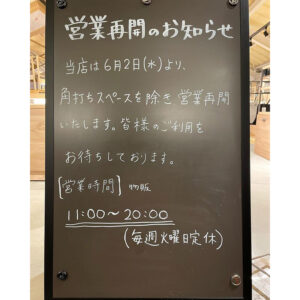 営業再開のお知らせ
当店は6月2日(水)より、
角打ちスペースを除き営業再開
いたします。皆様のご利用を
お待ちしております。
[営業時間] 物販
11:00〜20:00
(毎週火曜日定休)